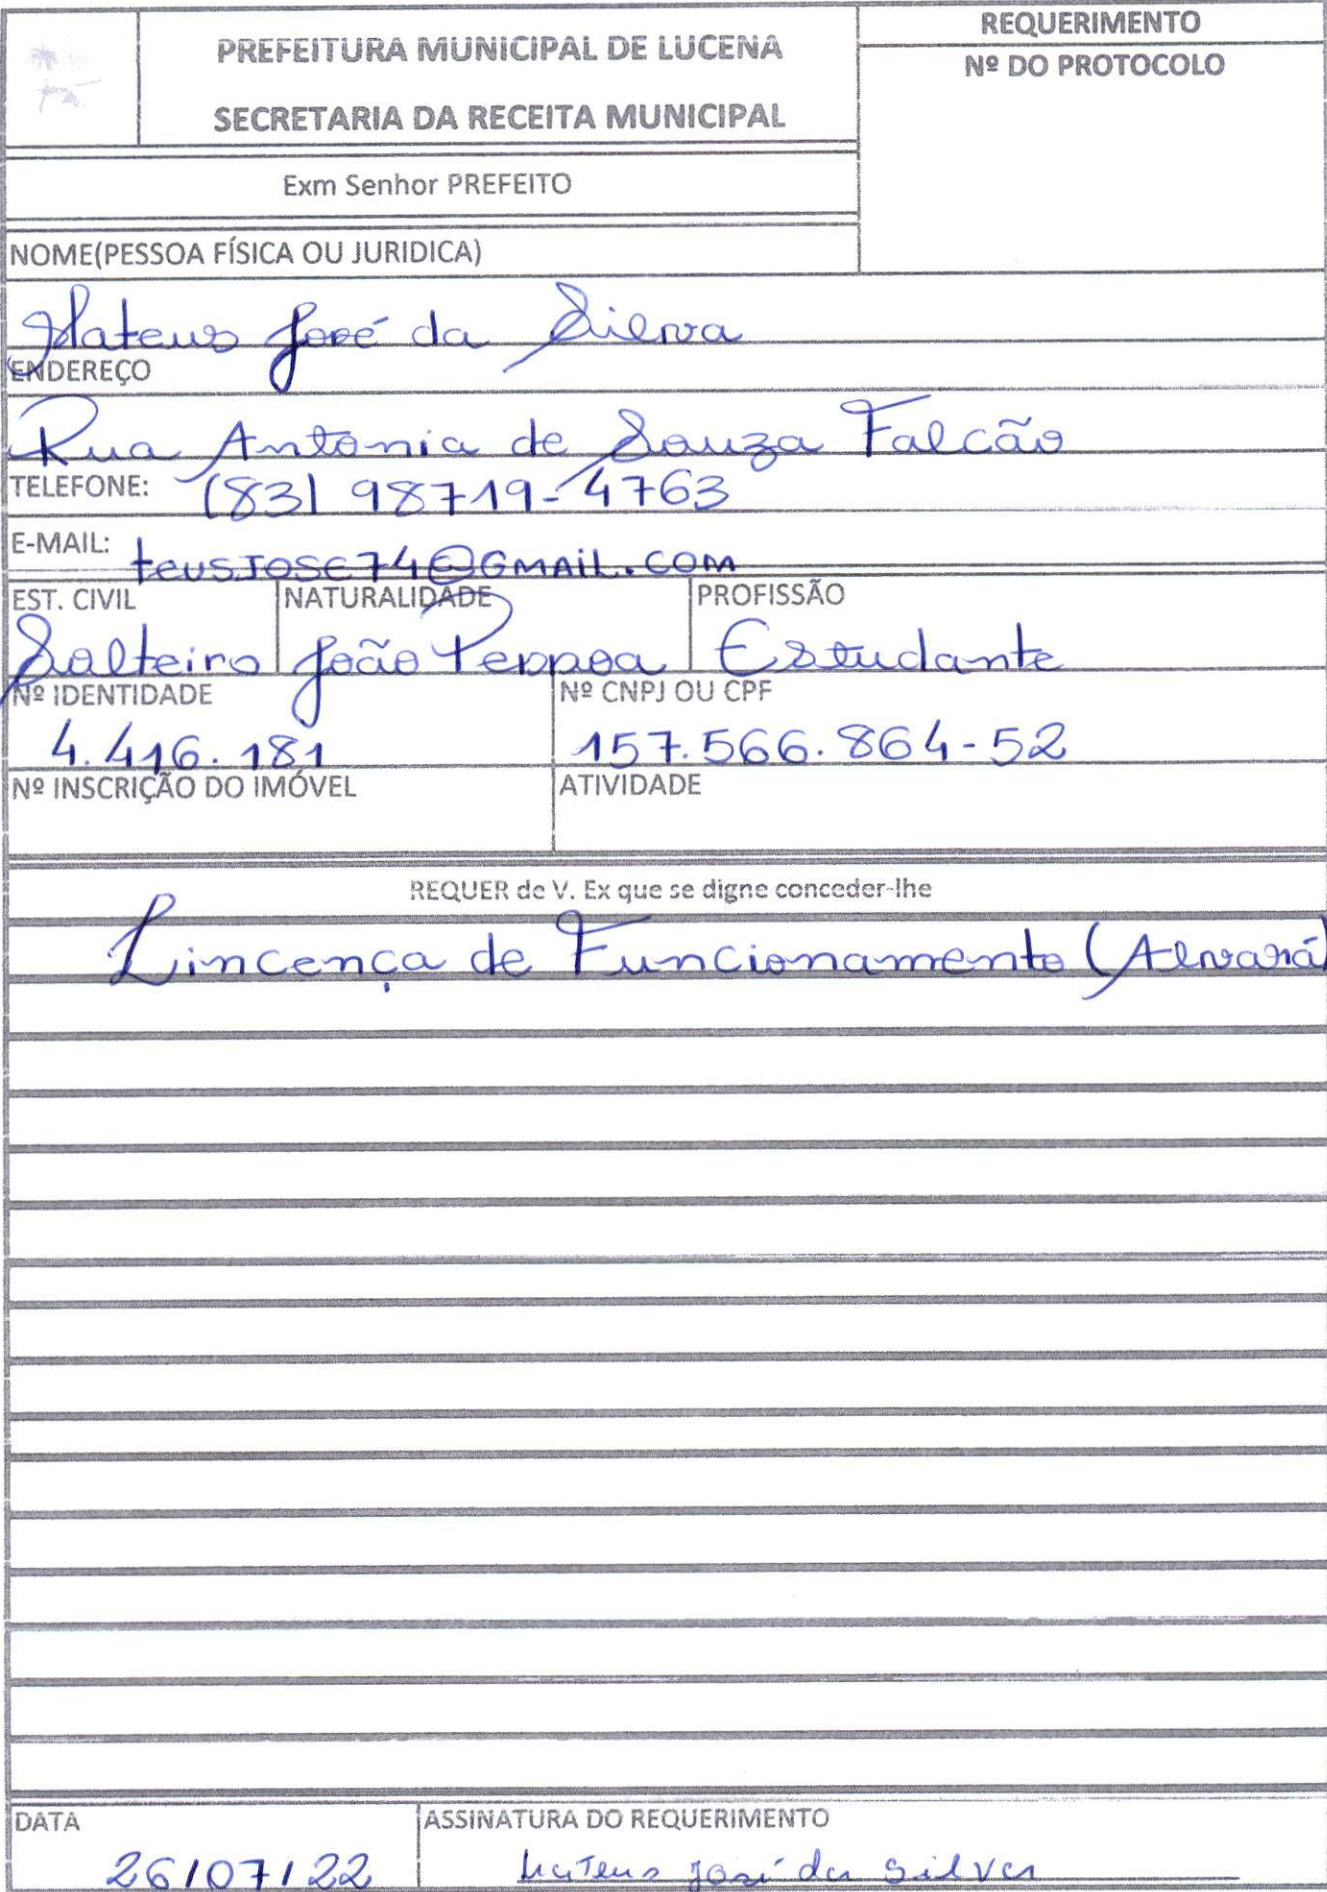 PREFEITURA MUNICIPAL DE LUCENA
SECRETARIA DA RECEITA MUNICIPAL
REQUERIMENTO
Nº DO PROTOCOLO
Exm Senhor PREFEITO
NOME(PESSOA FÍSICA OU JURIDICA)
Mateus José da Silva
ENDEREÇO
Rua Antonia de Souza Falcão
TELEFONE: (83) 98719-4763
E-MAIL: teusJose74@GMAiL.COM
EST. CIVIL NATURALIDADE PROFISSÃO
Solteiro João Pessoa Estudante
Nº IDENTIDADE Nº CNPJ OU CPF
4.416.181 157.566.864-52
Nº INSCRIÇÃO DO IMÓVEL ATIVIDADE
REQUER de V. Ex que se digne conceder-lhe
Lincença de Funcionamento (Alvará)
DATA ASSINATURA DO REQUERIMENTO
26/07/22 Mateus José da Silva